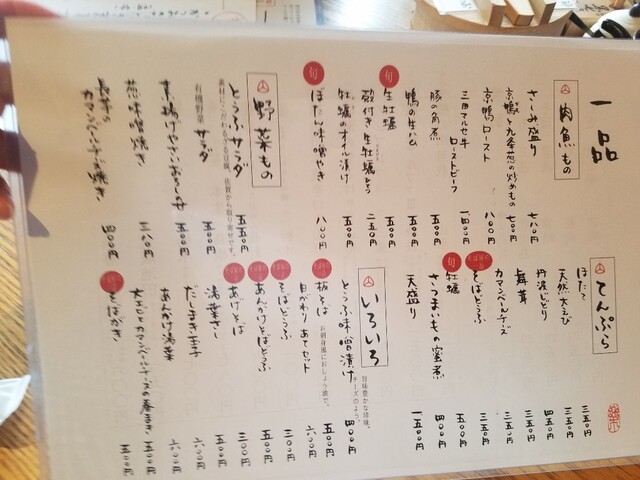 一品
肉魚もの
さしみ盛り 七八〇円
京鴨と九条葱の炒めもの 七〇〇円
京鴨ロースト 八〇〇円
三田マルセ牛ローストビーフ 一四〇〇円
豚の角煮 五〇〇円
鴨の生ハム 五〇〇円
旬 生牡蠣 五〇〇円
殻付き生牡蠣ひとつ 二五〇円
牡蠣のオイル漬け 五〇〇円
旬 ぼたん味噌やき 八〇〇円
野菜もの
とうふサラダ 五五〇円
素材にこだわる豆腐。佐賀から取り寄せです。
有機野菜サラダ 五五〇円
素揚げやさいおろしのせ 五〇〇円
葱味噌焼き 三八〇円
長芋のカマンベールチーズ焼き 四〇〇円
てんぷら
ほたて 三五〇円
天然大えび 三五〇円
丹波しめじ 四五〇円
舞茸 三五〇円
カマンベールチーズ 三五〇円
そばとうふ 三五〇円
旬 牡蠣 五〇〇円
さつまいもの蜜煮 四〇〇円
天盛り 一五〇〇円
いろいろ
とうふ味噌漬け 四〇〇円
旨味豊かな珍味。チーズのよう。
板そば 五〇〇円
お刺身風におしょう油で。
日がわりあてセット 六〇〇円
そばとうふ 三〇〇円
あんかけそばとうふ 五〇〇円
あげそば 三〇〇円
湯葉さし 五〇〇円
だしまき玉子 六〇〇円
あんかけ湯葉 六〇〇円
大エビとカマンベールチーズの春まき 五〇〇円
そばがき 五〇〇円